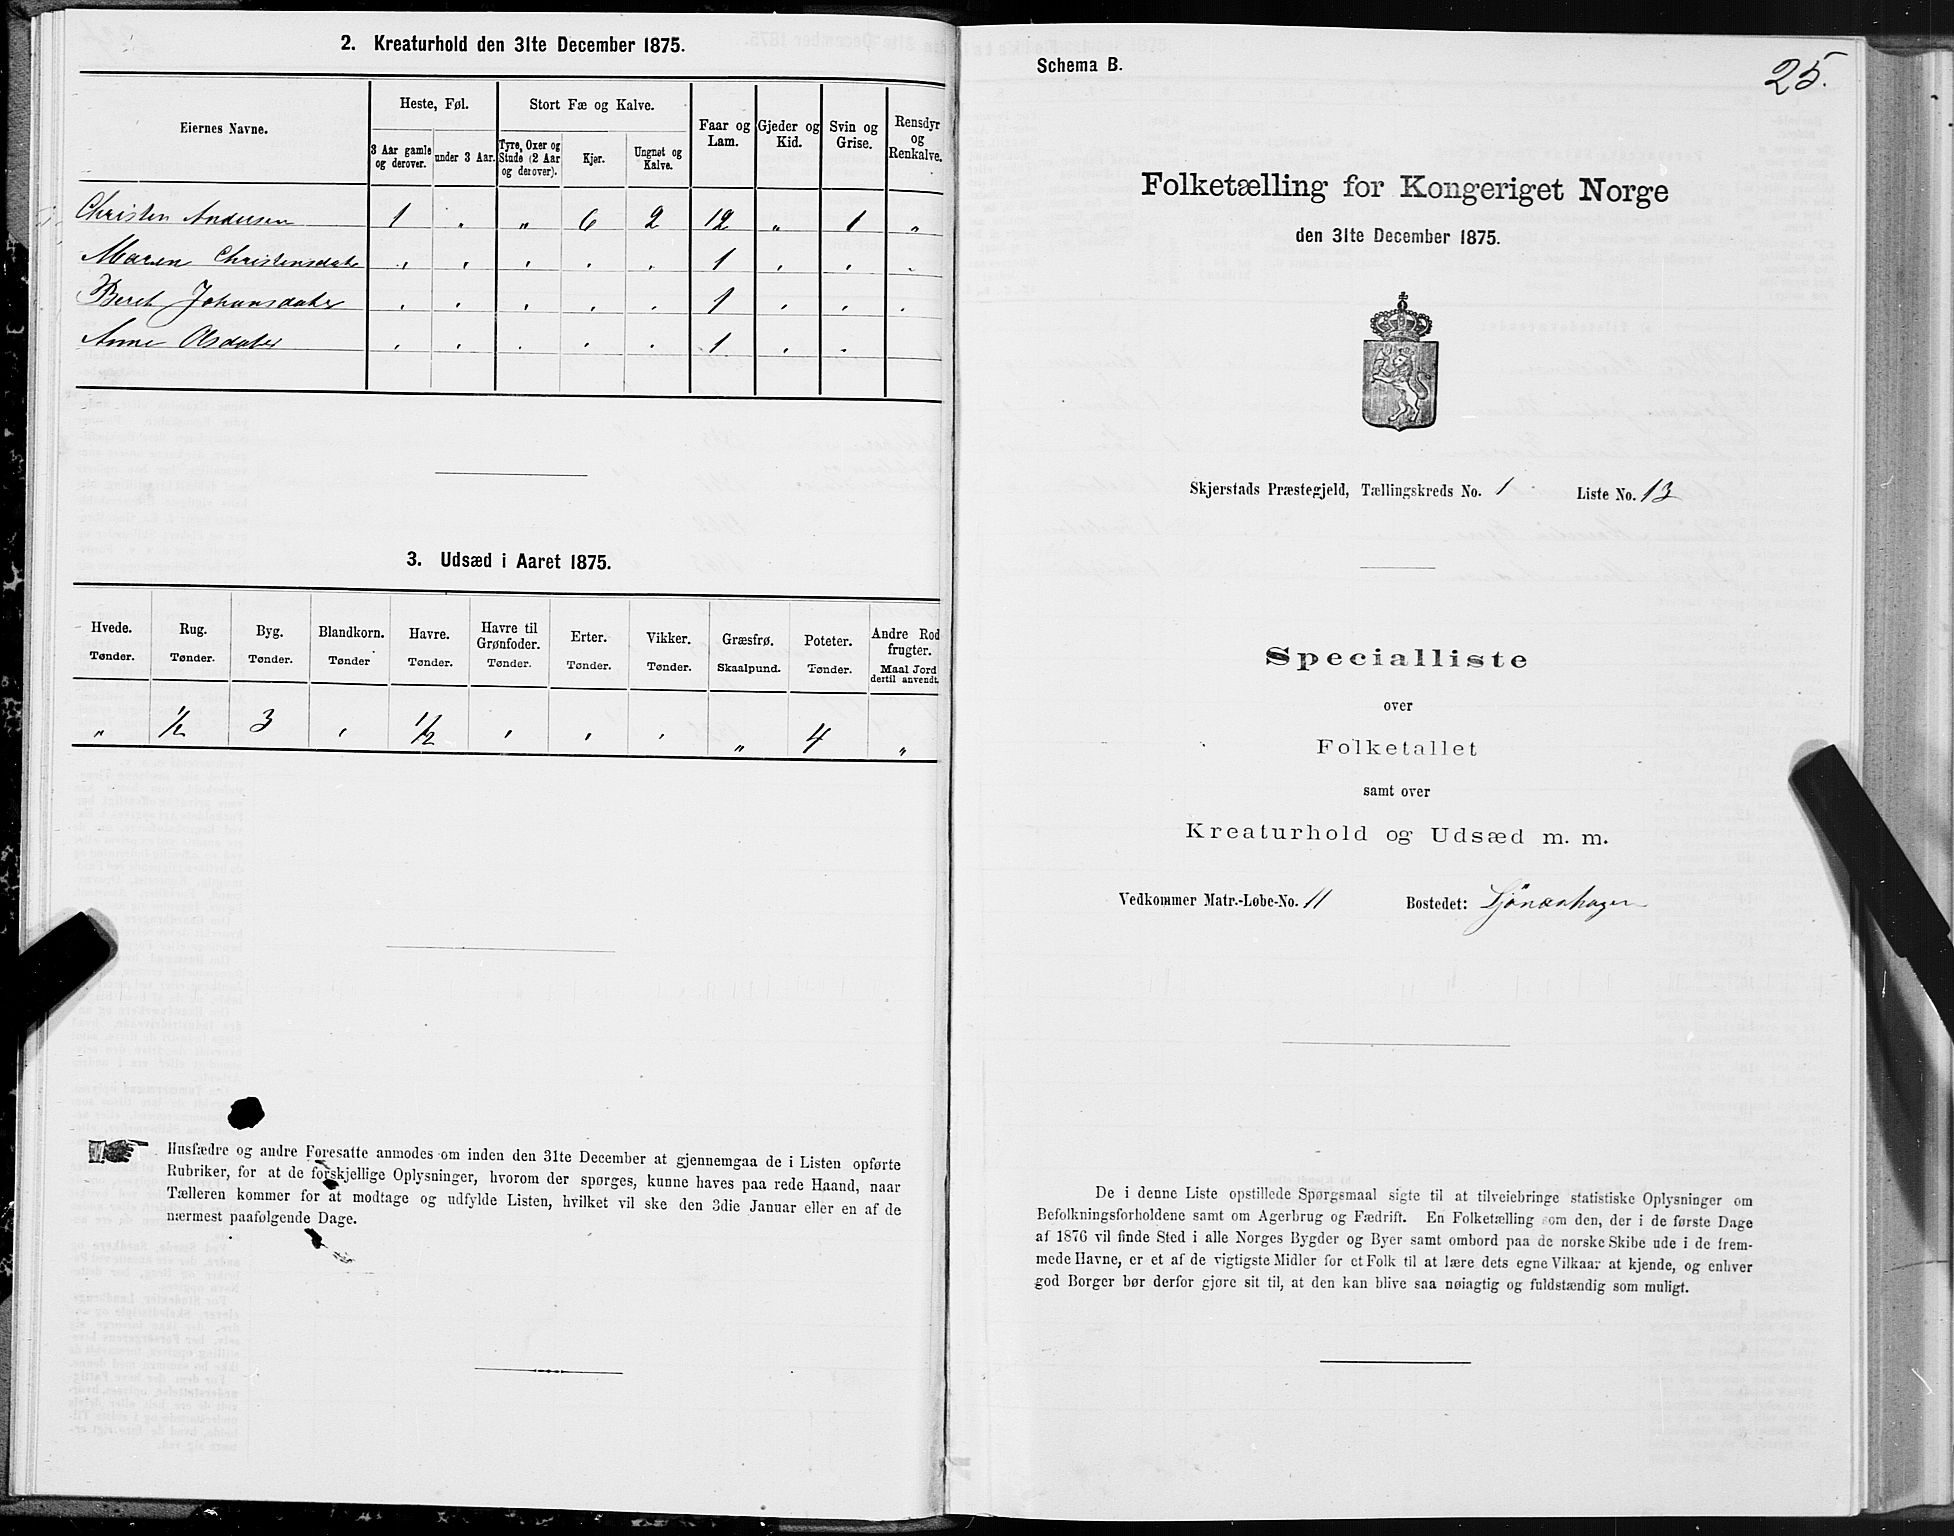 2. Kreaturhold den 31te December 1875.
Eiernes Navne.
Heste, Føl.
Stort Fæ og Kalve.
Faar og Lam.
Gjeder og Kid.
Svin og Grise.
Rensdyr og Renkalve.
3 Aar gamle og derover.
under 3 Aar.
Tyre, Oxer og Stude (2 Aar og derover).
Kjør.
Ungnøt og Kalve.
Christen Andersen 1 " " 6 2 12 " 1 "
Maren Christensdatr " " " " " 1 " " "
Beret Johansdatr " " " " " 1 " " "
Anne Olsdatr " " " " " 1 " "
3. Udsæd i Aaret 1875.
Hvede. Tønder.
Rug. Tønder.
Byg. Tønder.
Blandkorn. Tønder
Havre. Tønder.
Havre til Grønfoder. Tønder.
Erter. Tønder.
Vikker. Tønder.
Græsfrø. Skaalpund.
Poteter. Tønder.
Andre Rodfrugter. Maal Jord dertil anvendt.
" 1/2 3 " 1/2 " " " " 4 "
Husfædre og andre Foresatte anmodes om inden den 31te December at gjennemgaa de i Listen opførte
Rubriker, for at de forskjellige Oplysninger, hvorom der spørges, kunne haves paa rede Haand, naar
Tælleren kommer for at modtage og udfylde Listen, hvilket vil ske den 3die Januar eller en af de
nærmest paafølgende Dage.
Schema B.
25.
Folketælling for Kongeriget Norge
den 31te December 1875.
Skjerstads Præstegjeld, Tællingskreds No. 1 Liste No. 13
Specialliste
over
Folketallet
samt over
Kreaturhold og Udsæd m. m.
Vedkommer Matr.-Løbe-No. 11 Bostedet:
De i denne Liste opstillede Spørgsmaal sigte til at tilveiebringe statistiske Oplysninger om
Befolkningsforholdene samt om Agerbrug og Fædrift. En Folketælling som den, der i de første Dage
af 1876 vil finde Sted i alle Norges Bygder og Byer samt ombord paa de norske Skibe ude i de frem-
mede Havne, er et af de vigtigste Midler for et Folk til at lære dets egne Vilkaar at kjende, og enhver
god Borger bør derfor gjøre sit til, at den kan blive saa nøiagtig og fuldstændig som muligt.